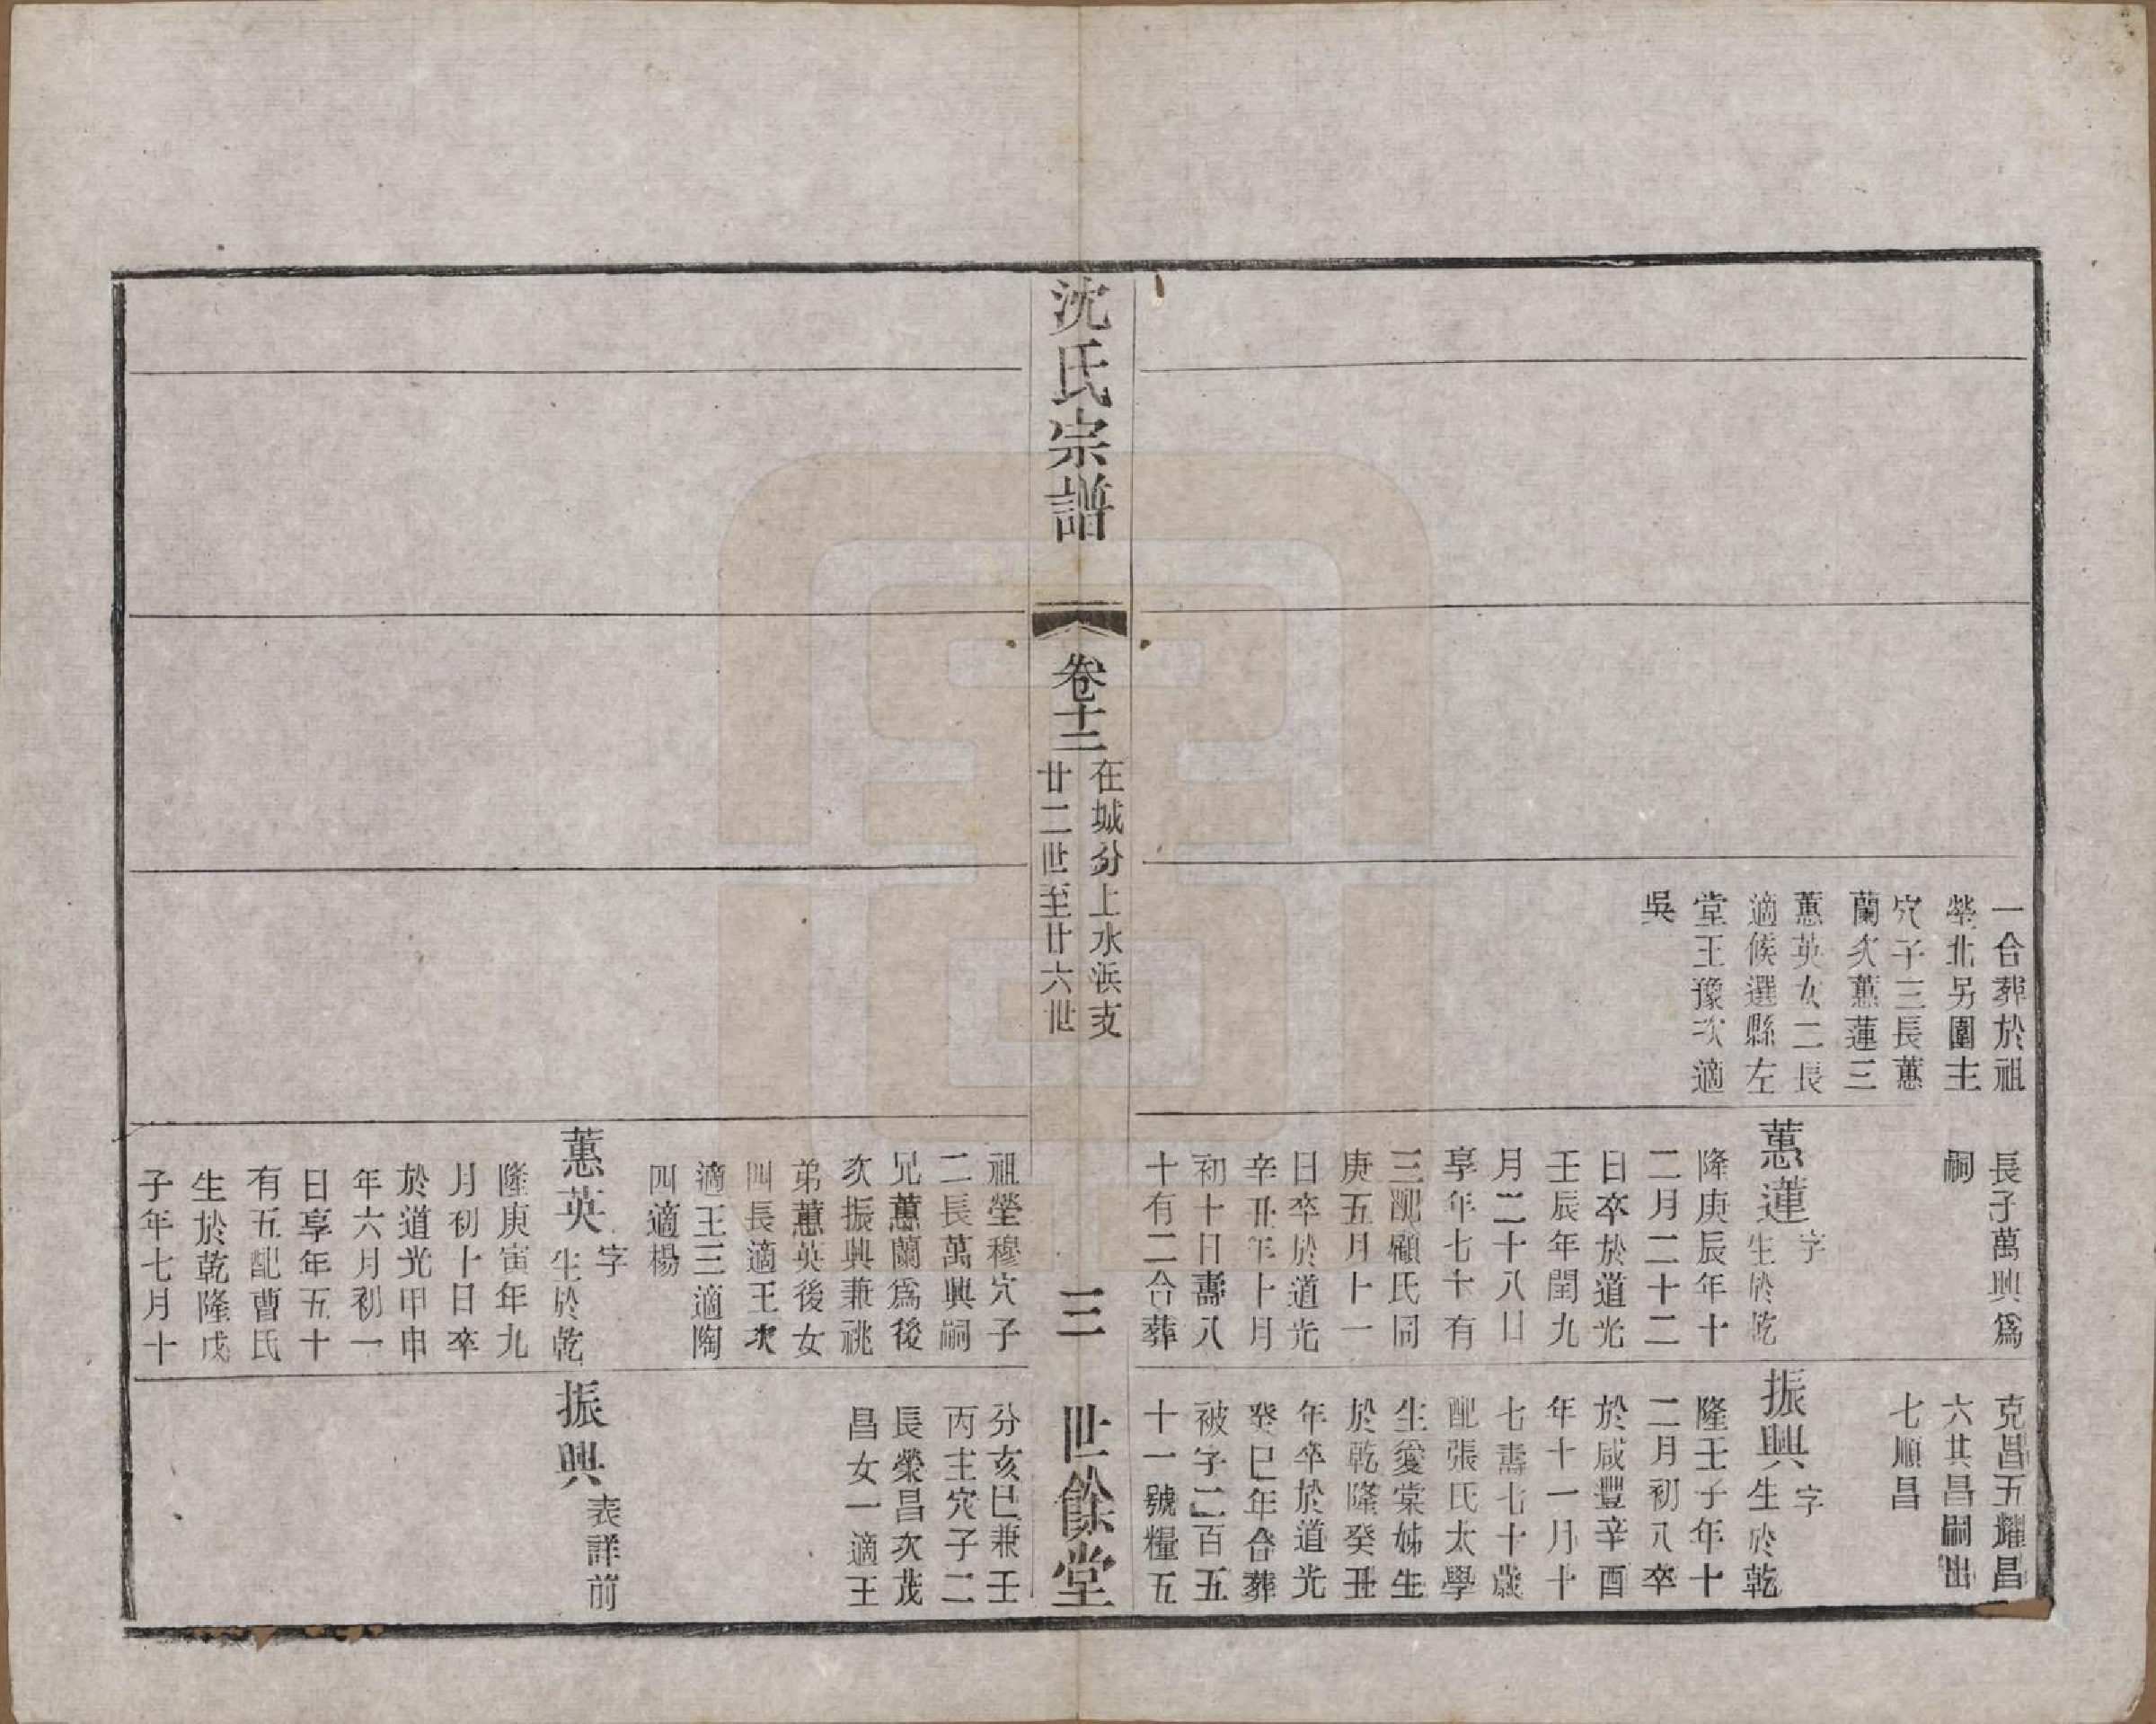 一合葬於祖
塋北另圍主
穴子三長蕙
蘭次蕙蓮三
蕙英女二長
適候選縣左
堂王豫次適
吳
長子萬興爲
嗣
蕙蓮字
生於乾
隆庚辰年十
二月二十二
日卒於道光
壬辰年閏九
月二十八日
享年七十有
三配顧氏同
庚五月十一
日卒於道光
辛丑年十月
初十日壽八
十有二合葬
克昌五耀昌
六其昌嗣出
七順昌
振興字
生於乾
隆壬子年十
二月初八卒
於咸豐辛酉
年十一月十
七壽七十歲
配張氏太學
生愛棠姊生
於乾隆癸丑
年卒於道光
癸巳年合葬
被字二百五
十一號糧五
沈氏宗譜
卷十二
在城分上水浜支
廿二世至廿六世
三
世餘堂
祖塋穆穴子
二長萬興嗣
兄蕙蘭爲後
次振興兼祧
弟蕙英後女
四長適王次
適王三適陶
四適楊
蕙英字
生於乾
隆庚寅年九
月初十日卒
於道光甲申
年六月初一
日享年五十
有五配曹氏
生於乾隆戊
子年七月十
分亥巳兼壬
丙主穴子二
長榮昌次茂
昌女一適王
振興
表詳前